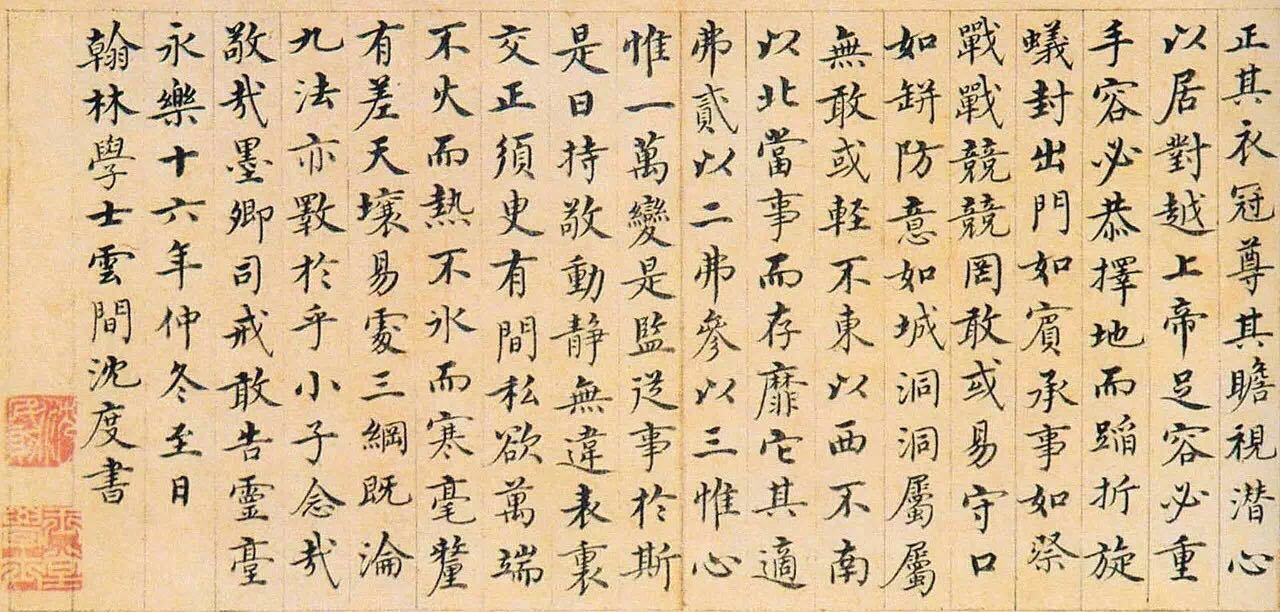 正其衣冠尊其瞻視潜心
以居對越上帝足容必重
手容必恭擇地而蹈折旋
蟻封出門如賓承事如祭
戰戰競競罔敢或易守口
如缾防意如城洞洞屬屬
無敢或軽不東以西不南
以北當事而存靡它其適
弗貳以二弗參以三惟心
惟一萬變是監從事於斯
是曰持敬動静無違表裏
交正須臾有間私欲萬端
不火而熱不冰而寒毫釐
有差天壤易處三綱既淪
九法亦斁於乎小子念哉
敬哉墨卿司戒敢告靈臺
永樂十六年仲冬至日
翰林學士雲間沈度書